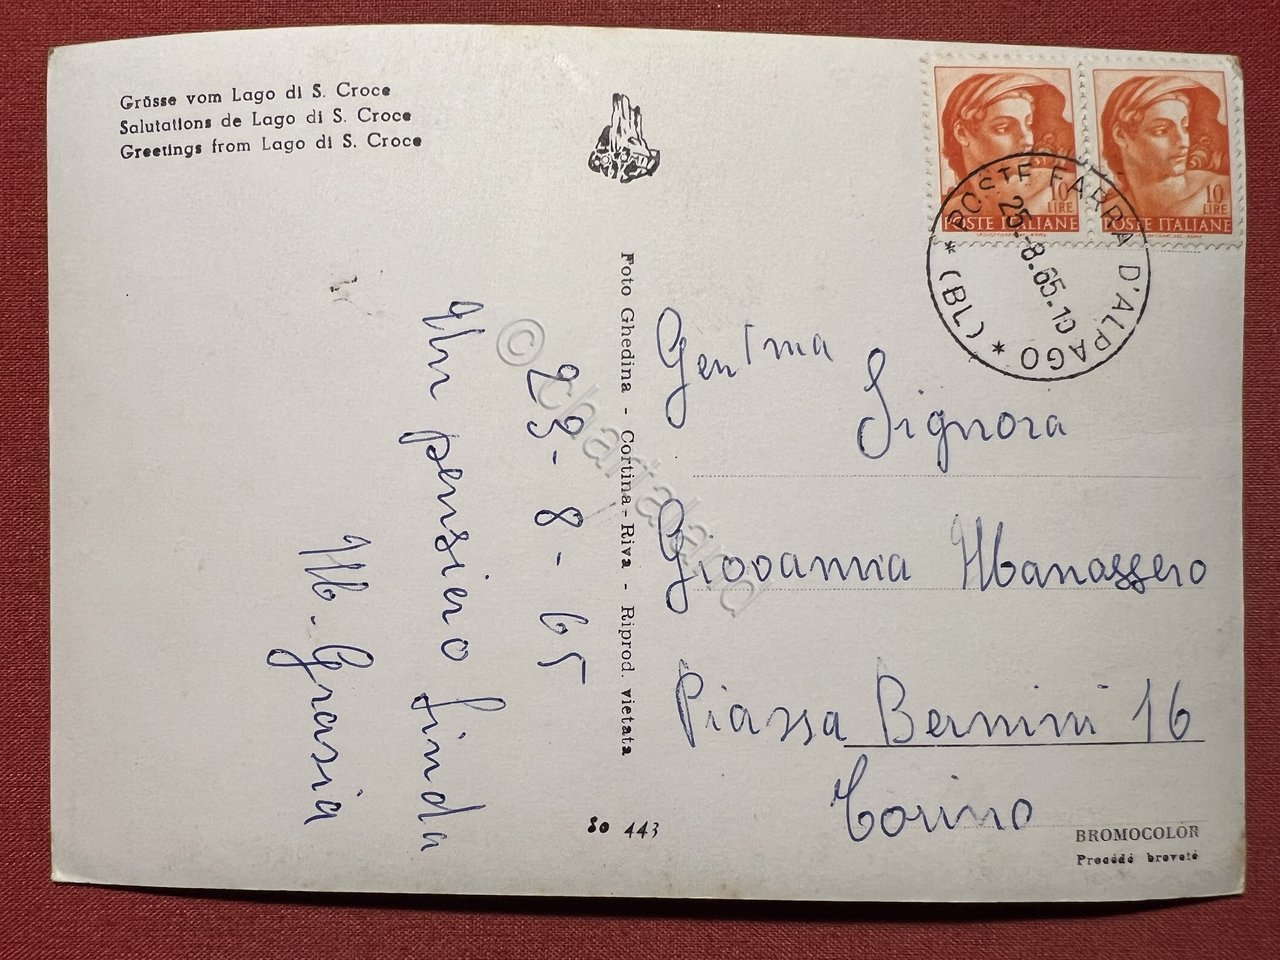 Grüsse vom Lago di S. Croce
Salutations de Lago di S. Croce
Greetings from Lago di S. Croce
10
LIRE
POSTE ITALIANE
10
LIRE
POSTE ITALIANE
* POSTE FARRA D'ALPAGO * (BL)
25.-8.65.10
23-8-65
Un pensiero Linda
M. Grasia
Foto Ghedina - Cortina - Riva - Riprod. vietata
Gen.ma
Signora
Giovanna Manassero
Piazza Bernini 16
Torino
So 443
BROMOCOLOR
Procédé breveté
© chartaland